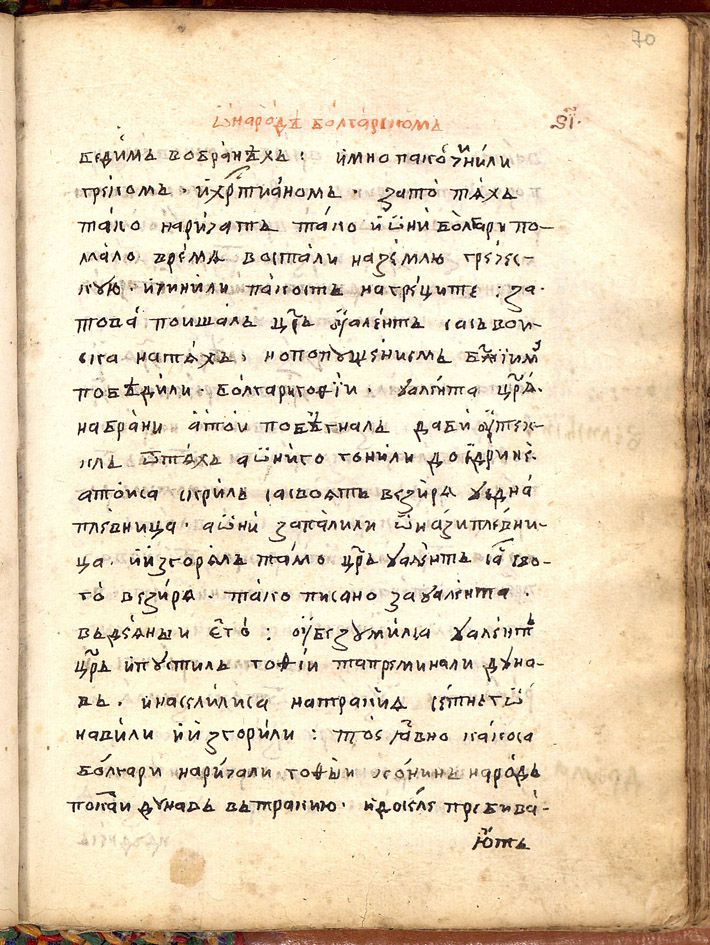 70
ѡ҆ наро́дѣ бо́лгарскомъ
бедимъ во бра́нѣхъ : и҆ много пако́сти чини́ли
грѣкомъ · и҆ хрⷭ҇тиа́номъ · зато́ тѧхъ
та́ко нари́чатъ та́ко и҆ ѡ҆ни́ бо́лгари по–
ма́ло вре́мѧ воста́ли на зе́млю гре́чес–
кую · и҆ чинили па́кость на гре́ците : за·
това̀ поишалъ цр҃ь ѹ҆а́лентъ сасъ вои–
ска на тѧхъ , но попꙋще́ниемъ бж҃їимъ
побѣди́ли · бо́лгари готѳі́и · ѹа́лента цр҃ѧ̀ ·
на бра́ни а҆ то́и побѣ́гналъ да би ѹ҆тек–
клъ ѿ тѧхъ а ѡ҆ни́ го го́нили до є҆дринѐ
а то́и са скри́лъ сас своятъ вези́рѧ ѹ є҆дна́
пле́вница · а ѡ҆ни́ запали́ли ѡ҆на́зи пле́вни–
ца · и҆ и҆згорѧлъ та́мо цр҃ь ѹале́нтъ сас сво–
го̀ везирѧ · та́ко писано за ѹале́нта ·
въ деѧныи є҆го̀ : ѹ҆безꙋми́лса ѹале́нтъ
цр҃ь и҆ пꙋсти́лъ готѳі́и та преминали дꙋна–
въ · и҆ насели́лиса на тракиѧ сетне го
на́били и҆ и҆згори́ли : то є ꙗ҆́вно како са
бо́лгари нари́чали готѳы́и народъ
по краи дꙋнавъ въ тракию · и҆ досе́ле пребива́–
ютъ